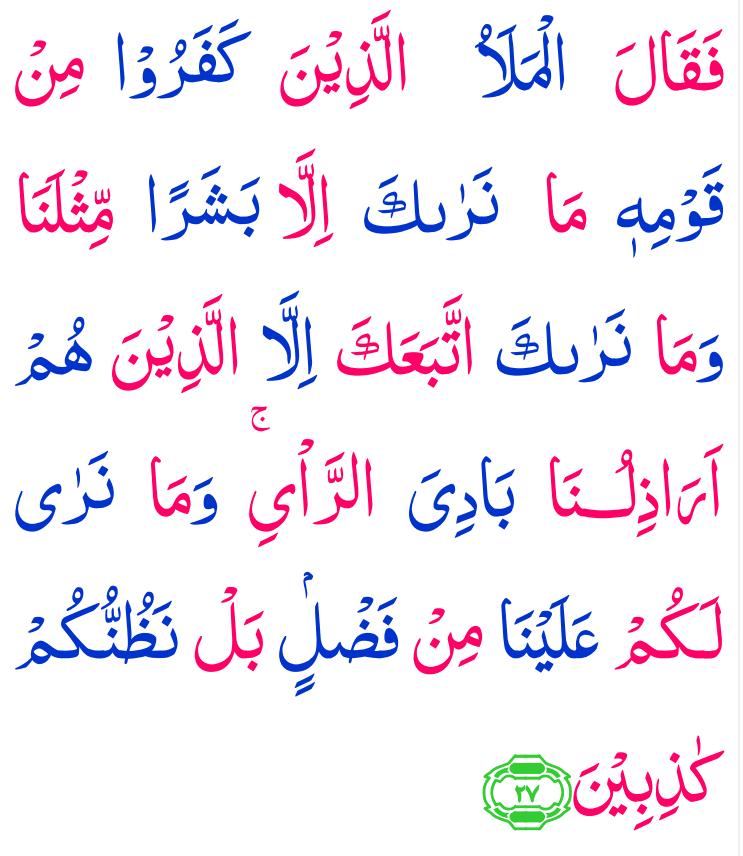 فَقَالَ الْمَلَاُ الَّذِيْنَ كَفَرُوْا مِنْ
قَوْمِهٖ مَا نَرٰىكَ اِلَّا بَشَرًا مِّثْلَنَا
وَمَا نَرٰىكَ اتَّبَعَكَ اِلَّا الَّذِيْنَ هُمْ
اَرَاذِلُـنَا بَادِىَ الرَّاْىِ ۚ وَمَا نَرٰى
لَـكُمْ عَلَيْنَا مِنْ فَضْلٍۢ بَلْ نَظُنُّكُمْ
كٰذِبِيْنَ ﴿۲۷﴾